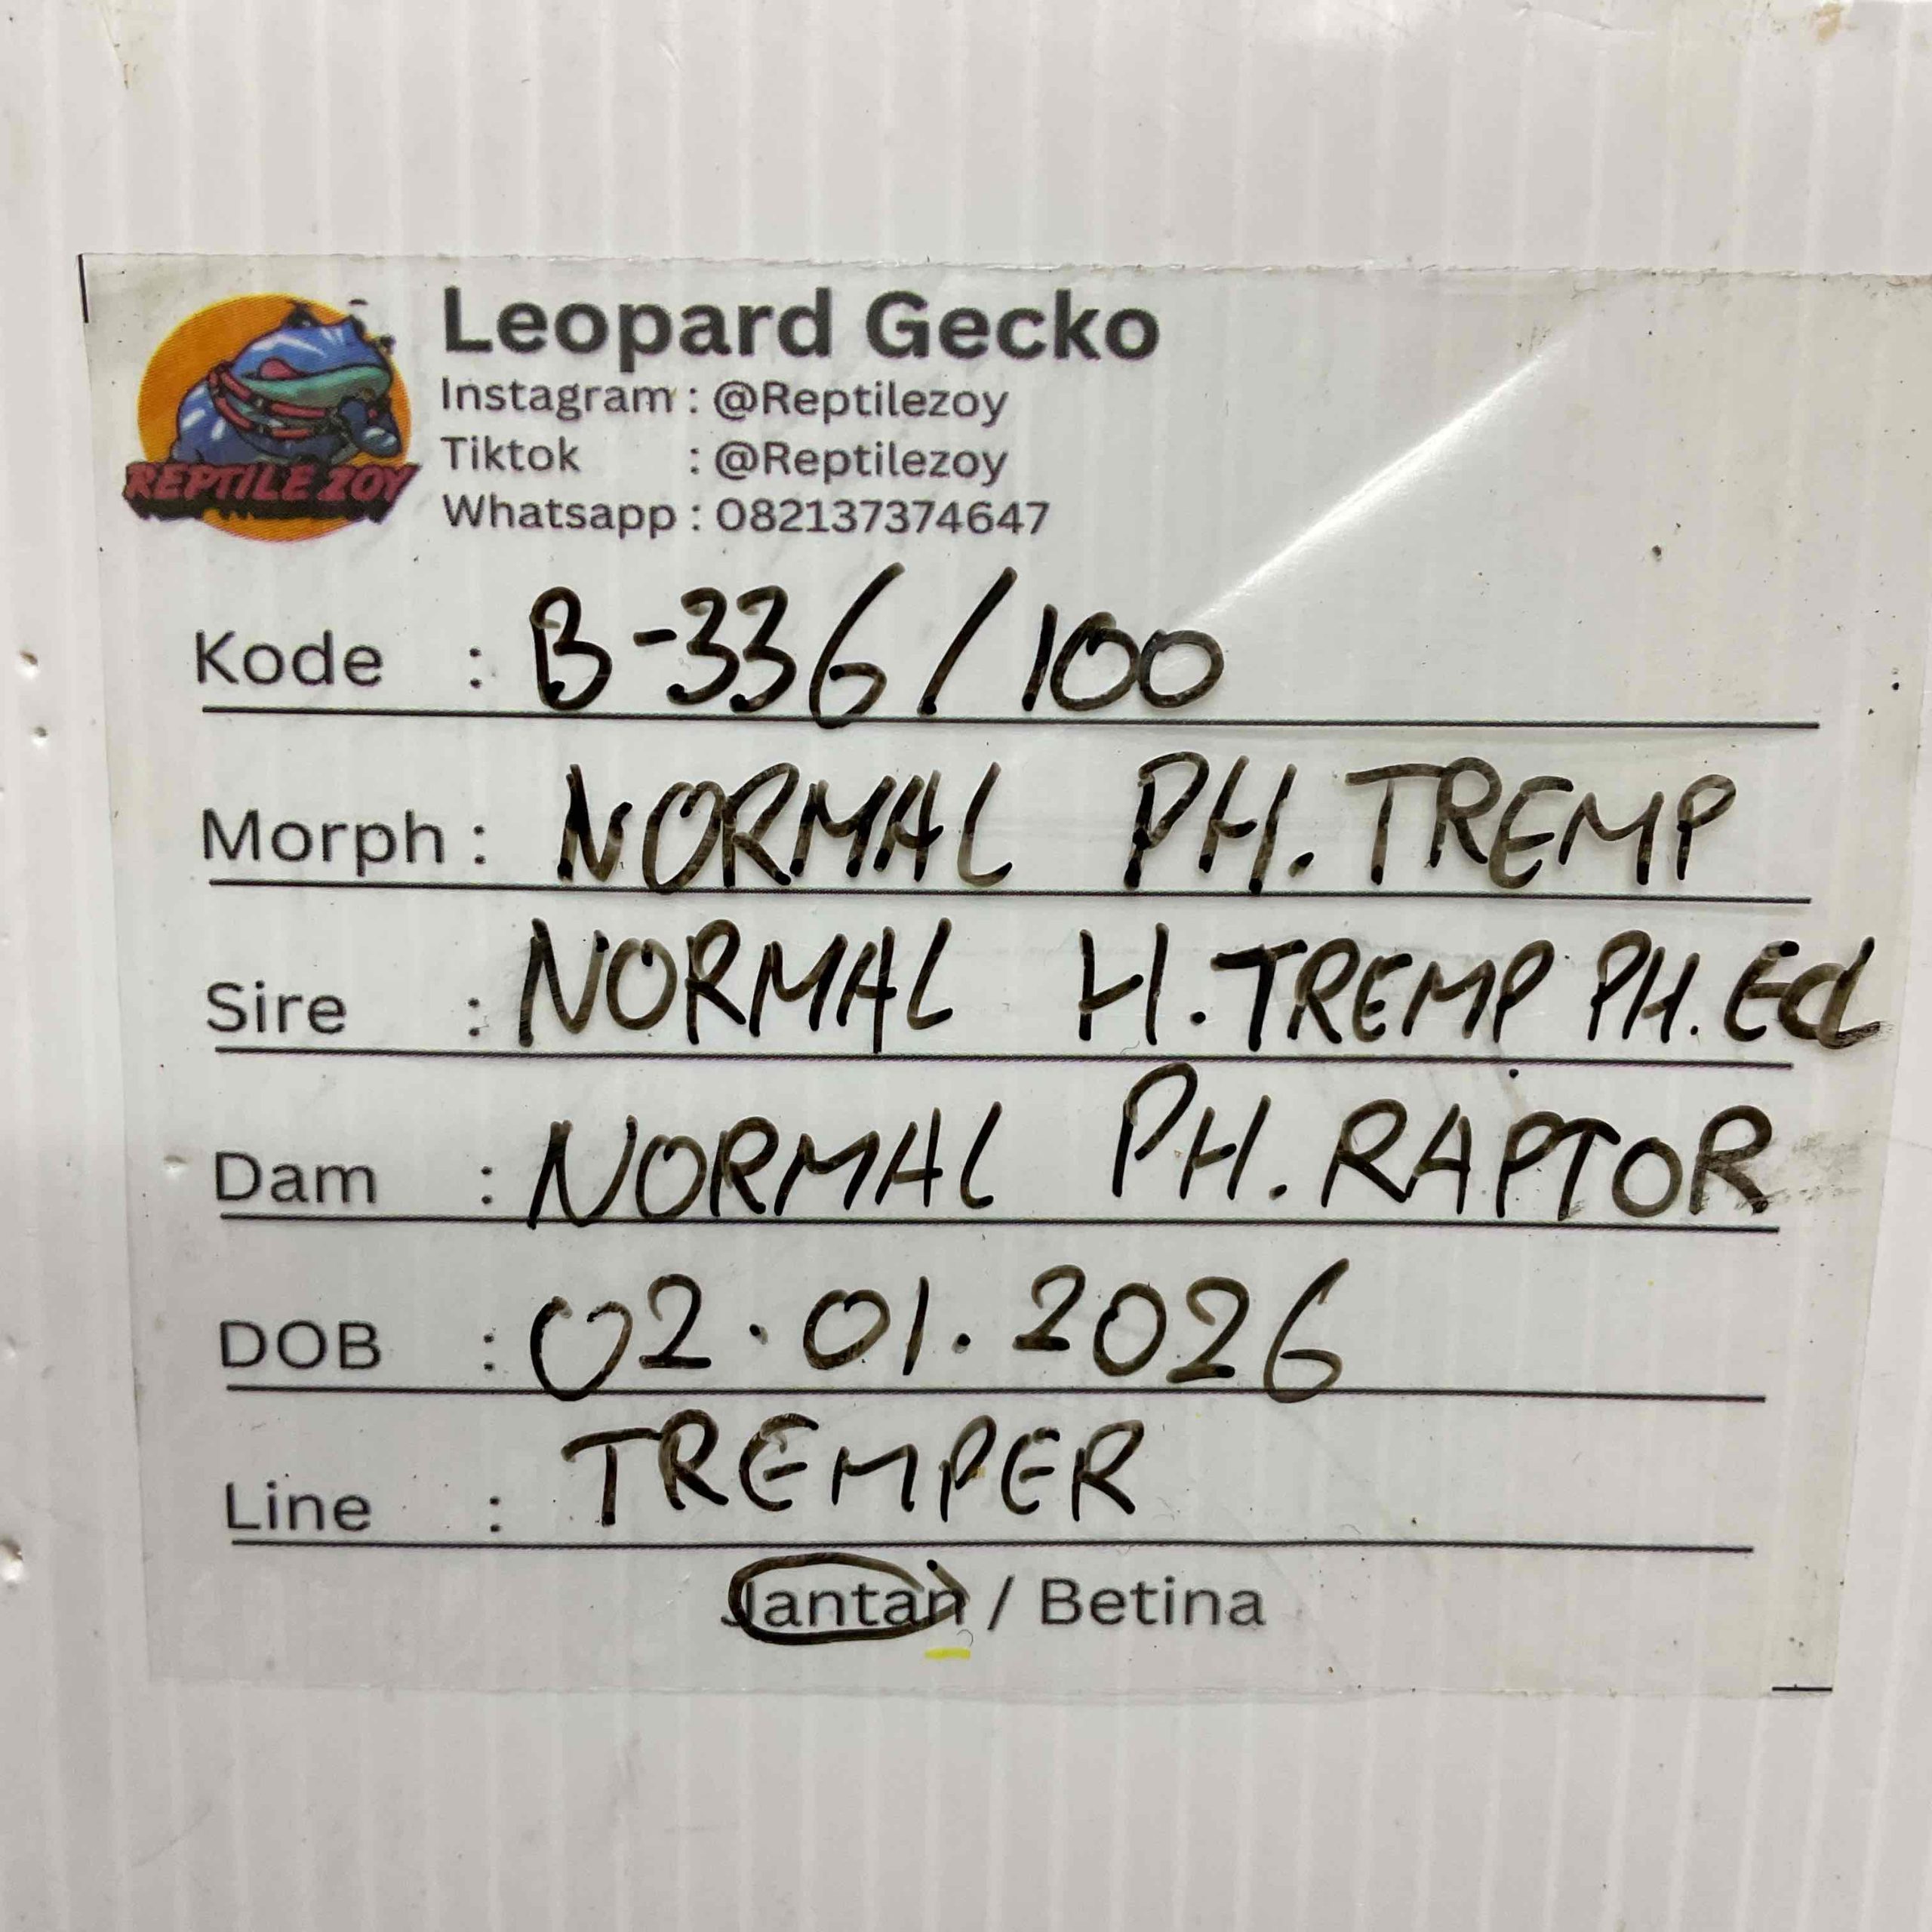 REPTILE ZOY
Leopard Gecko
Instagram : @Reptilezoy
Tiktok : @Reptilezoy
Whatsapp : 082137374647
Kode : B-336/100
Morph : NORMAL PH. TREMP
Sire : NORMAL H. TREMP PH. Ecl
Dam : NORMAL PH. RAPTOR
DOB : 02.01.2026
Line : TREMPER
Jantan / Betina